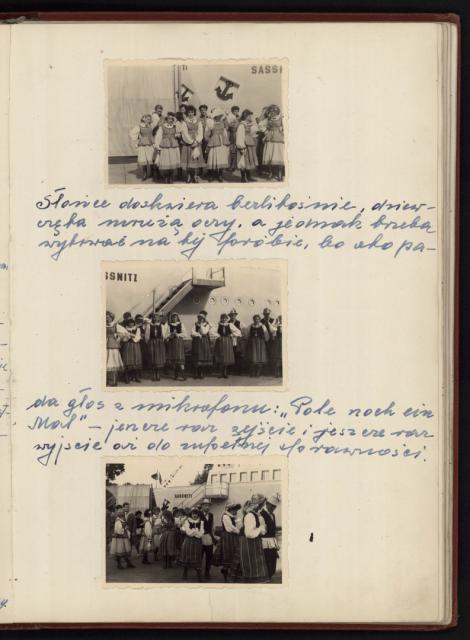 SASSI
Słońce doskwiera bezlitośnie, dziew-
częta mrużą oczy, a jednak trzeba
wytrwać na tej próbie, bo oto pa-
SSNITZ
da głos z mikrofonu: „Pole noch ein
Mal" – jeszcze raz zejście i jeszcze raz
wyjście aż do zupełnej sprawności.
SASSNITZ